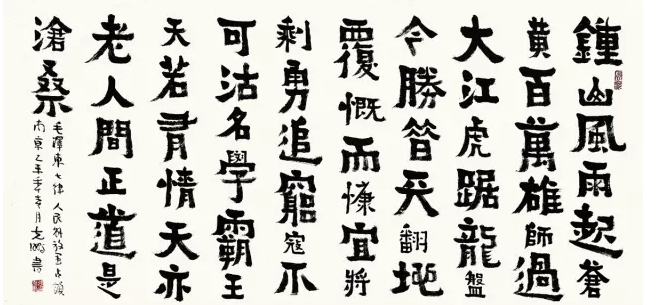 鍾山風雨起蒼
黄百萬雄師過
大江虎踞龍盤
今勝昔天翻地
覆慨而慷宜將
剩勇追窮寇不
可沽名學霸王
天若有情天亦
老人間正道是
滄桑
毛澤東七律人民解放軍占領
南京乙未季月書